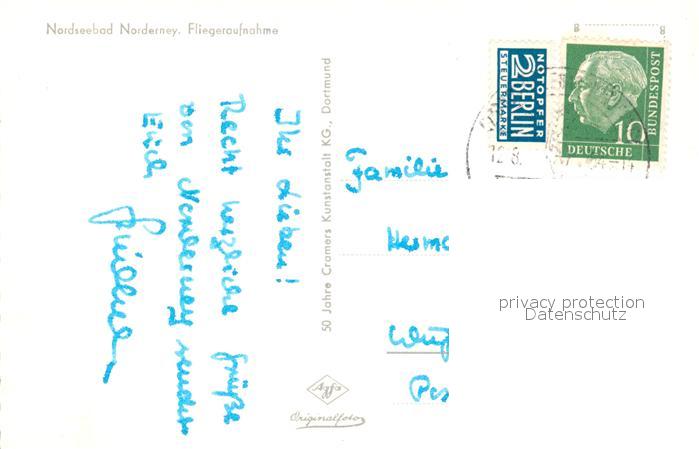 Nordseebad Norderney. Fliegeraufnahme
Ihr Lieben!
Recht herzliche Grüße
von Norderney sendet
Euch
50 Jahre Cramers Kunstanstalt KG., Dortmund
Agfa
Originalfoto
NOTOPFER
2 BERLIN
STEUERMARKE
DEUTSCHE
BUNDESPOST
10
12.8.
Familie
privacy protection
Datenschutz